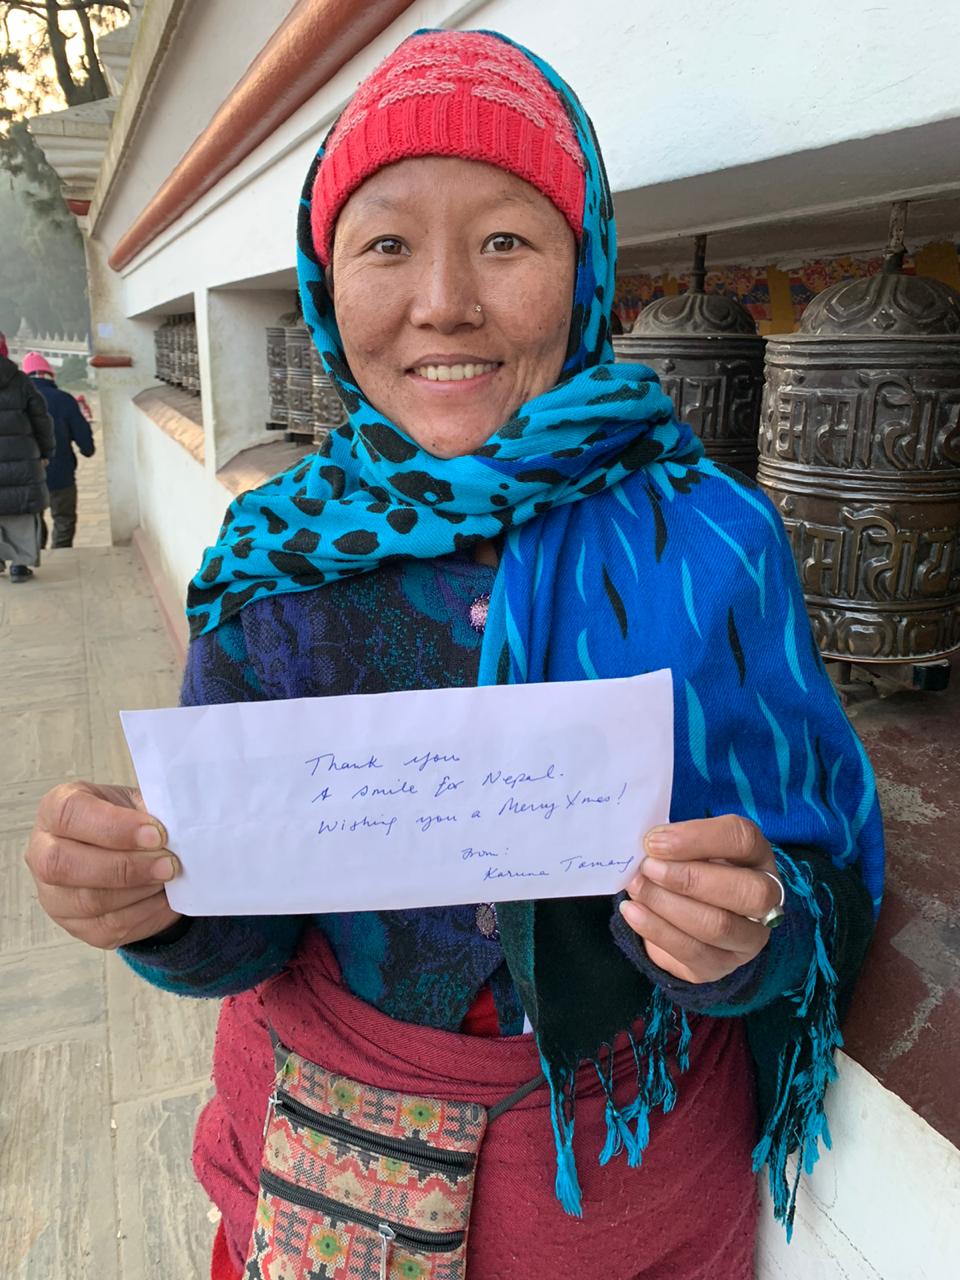 Thank you
A smile for Nepal.
Wishing you a Merry Xmas!
From:
Karuna Tamang